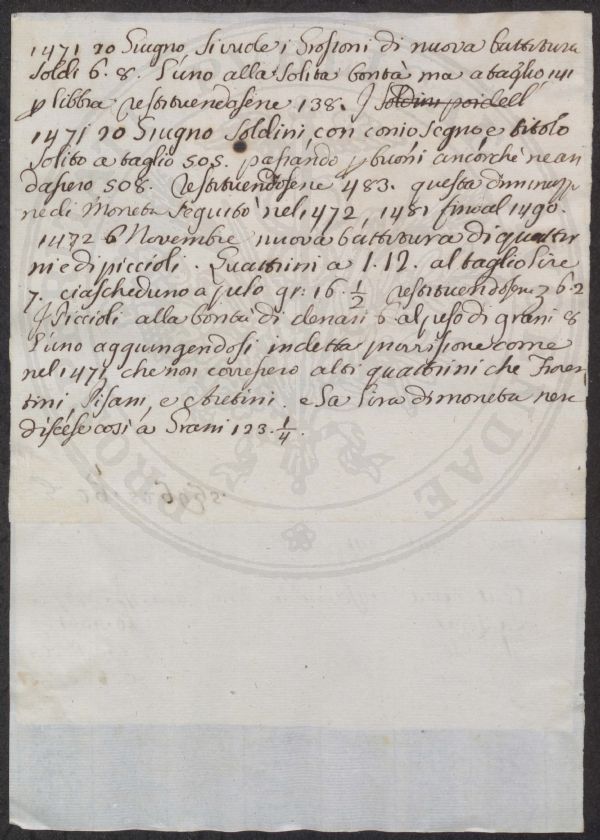 1471 20 Giugno, Si vude i Grossoni di nuova battitura
Soldi 6. 8. l'uno alla solita bontà ma a taglio 141
p libbra restituendosene 138. I Soldini poi dell
1471 20 Giugno Soldini, con conio segno e titolo
solito a taglio 505. passando p buoni ancorchè ne an
dassero 508. restituendosene 483. questa diminuzio
ne di Moneta seguitò nel 1472, 1481 fino al 1490.
1472 6 Novembre nuova battitura di quattri
ni e di piccioli. Quattrini a 1. 12. al taglio lire
7. ciascheduno a peso gr: 16 1/2 restituendosene 7 6. 2
I Piccioli alla bontà di denari 6. al peso di grani 8
l'uno aggiungendosi in detta provisione come
nel 1471 che non corressero altri quattrini che Fioren
tini, Pisani, e Aretini. e La lira di moneta ne
discese così à Grani 123. 1/4.